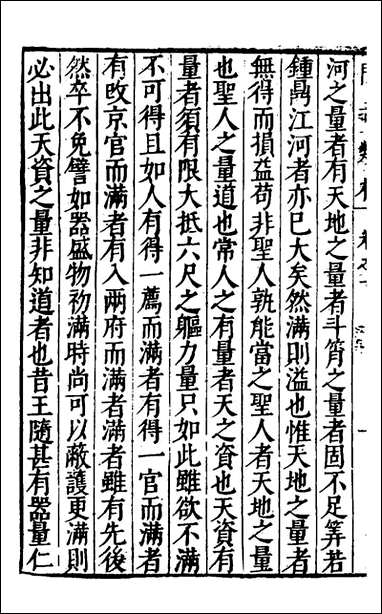 河之量者有天地之量者斗筲之量者固不足筭若
鍾鼎江河者亦巳大矣然滿則溢也惟天地之量者
無得而損益苟非聖人孰能當之聖人者天地之量
也聖人之量道也常人之有量者天之資也天資有
量者須有限大抵六尺之軀力量只如此雖欲不滿
不可得且如人有得一薦而滿者有得一官而滿者
有攺京官而滿者有入兩府而滿者滿者雖有先後
然卒不免譬如器盛物初滿時尚可以蔽護更滿則
必出此天資之量非知道者也昔王隨甚有器量仁